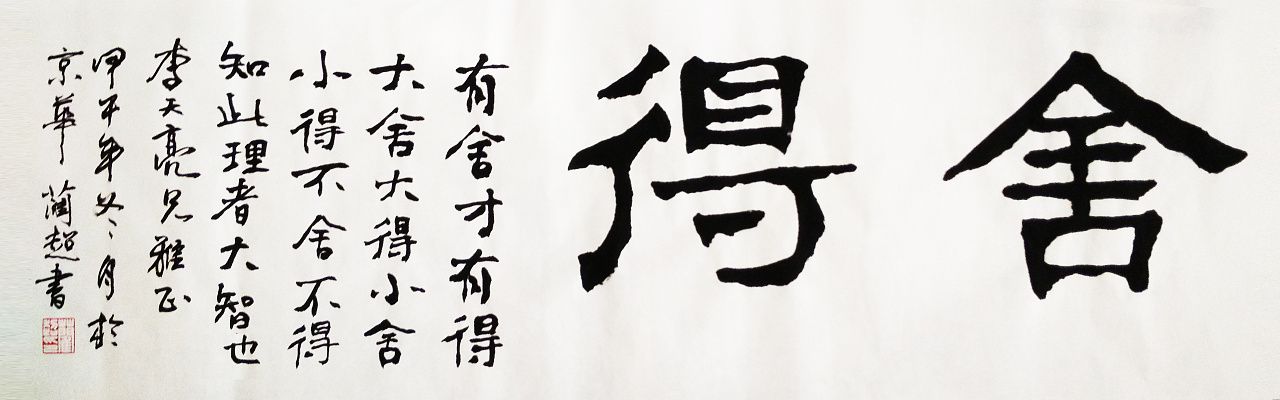 舍得
有舍才有得
大舍大得小舍
小得不舍不得
知此理者大智也
李天亮兄雅正
甲午年冬月於
京華 蘭超書